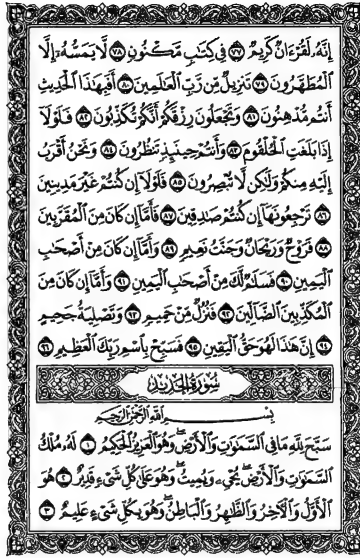 إِنَّهُۥ لَقُرْءَانٌ كَرِيمٌ ٧٧ فِى كِتَٰبٍ مَّكْنُونٍ ٧٨ لَّا يَمَسُّهُۥٓ إِلَّا
ٱلْمُطَهَّرُونَ ٧٩ تَنزِيلٌ مِّن رَّبِّ ٱلْعَٰلَمِينَ ٨٠ أَفَبِهَٰذَا ٱلْحَدِيثِ
أَنتُم مُّدْهِنُونَ ٨١ وَتَجْعَلُونَ رِزْقَكُمْ أَنَّكُمْ تُكَذِّبُونَ ٨٢ فَلَوْلَآ
إِذَا بَلَغَتِ ٱلْحُلْقُومَ ٨٣ وَأَنتُمْ حِينَئِذٍ تَنظُرُونَ ٨٤ وَنَحْنُ أَقْرَبُ
إِلَيْهِ مِنكُمْ وَلَٰكِن لَّا تُبْصِرُونَ ٨٥ فَلَوْلَآ إِن كُنتُمْ غَيْرَ مَدِينِينَ
٨٦ تَرْجِعُونَهَآ إِن كُنتُمْ صَٰدِقِينَ ٨٧ فَأَمَّآ إِن كَانَ مِنَ ٱلْمُقَرَّبِينَ
٨٨ فَرَوْحٌ وَرَيْحَانٌ وَجَنَّتُ نَعِيمٍ ٨٩ وَأَمَّآ إِن كَانَ مِنْ أَصْحَٰبِ
ٱلْيَمِينِ ٩٠ فَسَلَٰمٌ لَّكَ مِنْ أَصْحَٰبِ ٱلْيَمِينِ ٩١ وَأَمَّآ إِن كَانَ مِنَ
ٱلْمُكَذِّبِينَ ٱلضَّآلِّينَ ٩٢ فَنُزُلٌ مِّنْ حَمِيمٍ ٩٣ وَتَصْلِيَةُ جَحِيمٍ
٩٤ إِنَّ هَٰذَا لَهُوَ حَقُّ ٱلْيَقِينِ ٩٥ فَسَبِّحْ بِٱسْمِ رَبِّكَ ٱلْعَظِيمِ ٩٦
سُورَةُ الْحَدِيدِ
بِسْمِ ٱللَّهِ ٱلرَّحْمَٰنِ ٱلرَّحِيمِ
سَبَّحَ لِلَّهِ مَا فِى ٱلسَّمَٰوَٰتِ وَٱلْأَرْضِ وَهُوَ ٱلْعَزِيزُ ٱلْحَكِيمُ ١ لَهُۥ مُلْكُ
ٱلسَّمَٰوَٰتِ وَٱلْأَرْضِ يُحْىِۦ وَيُمِيتُ وَهُوَ عَلَىٰ كُلِّ شَىْءٍ قَدِيرٌ ٢ هُوَ
ٱلْأَوَّلُ وَٱلْءَاخِرُ وَٱلظَّٰهِرُ وَٱلْبَاطِنُ وَهُوَ بِكُلِّ شَىْءٍ عَلِيمٌ ٣